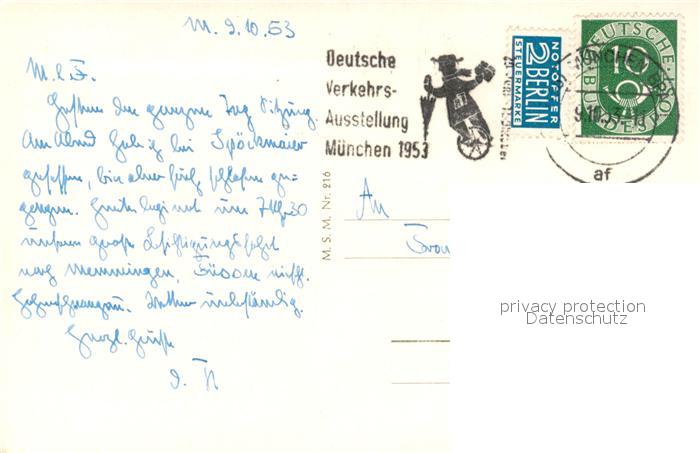 M. 9.10.53
M. l. F.
Gestern den ganzen Tag Sitzung.
Am Abend bei Spöckmaier
gesessen, bin aber früh schlafen ge-
gangen. Heute um 7 Uhr 30
unsere große Besichtigungsfahrt
nach Memmingen, Füssen
Hohenschwangau. Wetter unbeständig.
Herzl. Grüße
Deutsche
Verkehrs-
Ausstellung
München 1953
NOTOPFER
2 BERLIN
STEUERMARKE
DEUTSCHE
BUNDESPOST
10
MÜNCHEN
9.10.53
af
M. S. M. Nr. 216
An
Frau
privacy protection
Datenschutz